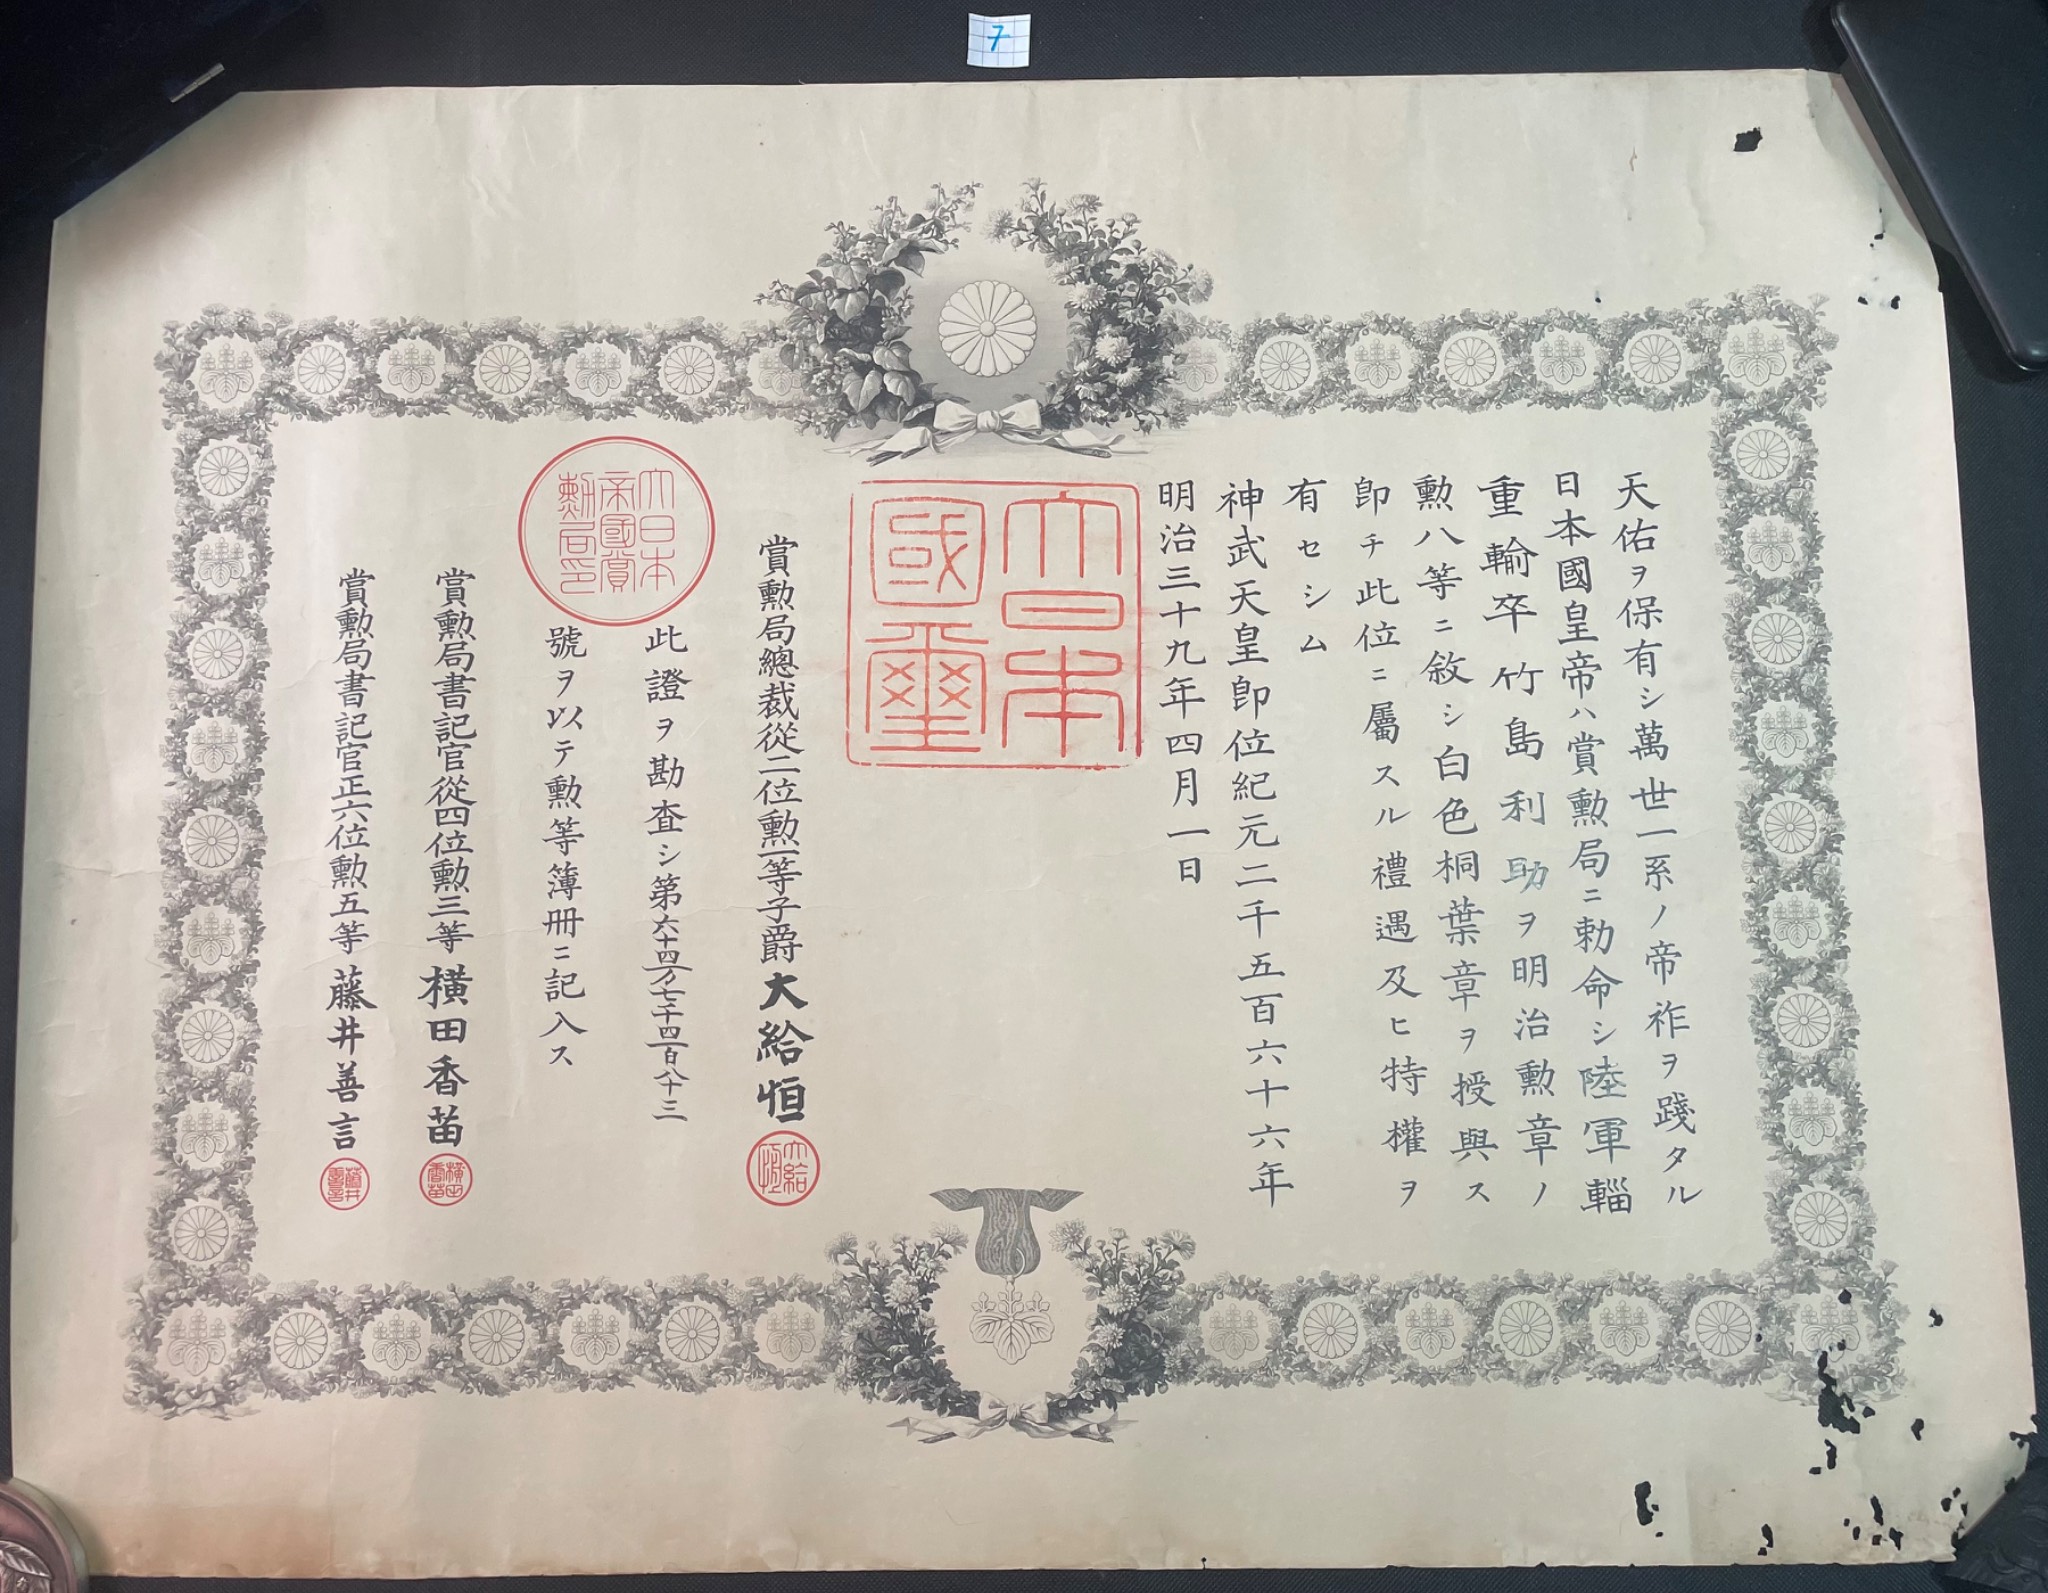 7
天佑ヲ保有シ萬世一系ノ帝祚ヲ踐タル
日本國皇帝ハ賞勲局ニ勅命シ陸軍輜
重輸卒竹島利助ヲ明治勲章ノ
勲八等ニ敘シ白色桐葉章ヲ授與ス
卽チ此位ニ屬スル禮遇及ヒ特權ヲ
有セシム
神武天皇卽位紀元二千五百六十六年
明治三十九年四月一日
大日本
國璽
賞勲局總裁從二位勲一等子爵大給恒
大給
恒
此證ヲ勘査シ第六十四万七千四百八十三
號ヲ以テ勲等簿冊ニ記入ス
大日本
帝國賞
勲局印
賞勲局書記官從四位勲三等橫田香苗
橫田
香苗
賞勲局書記官正六位勲五等藤井善言
藤井
善言